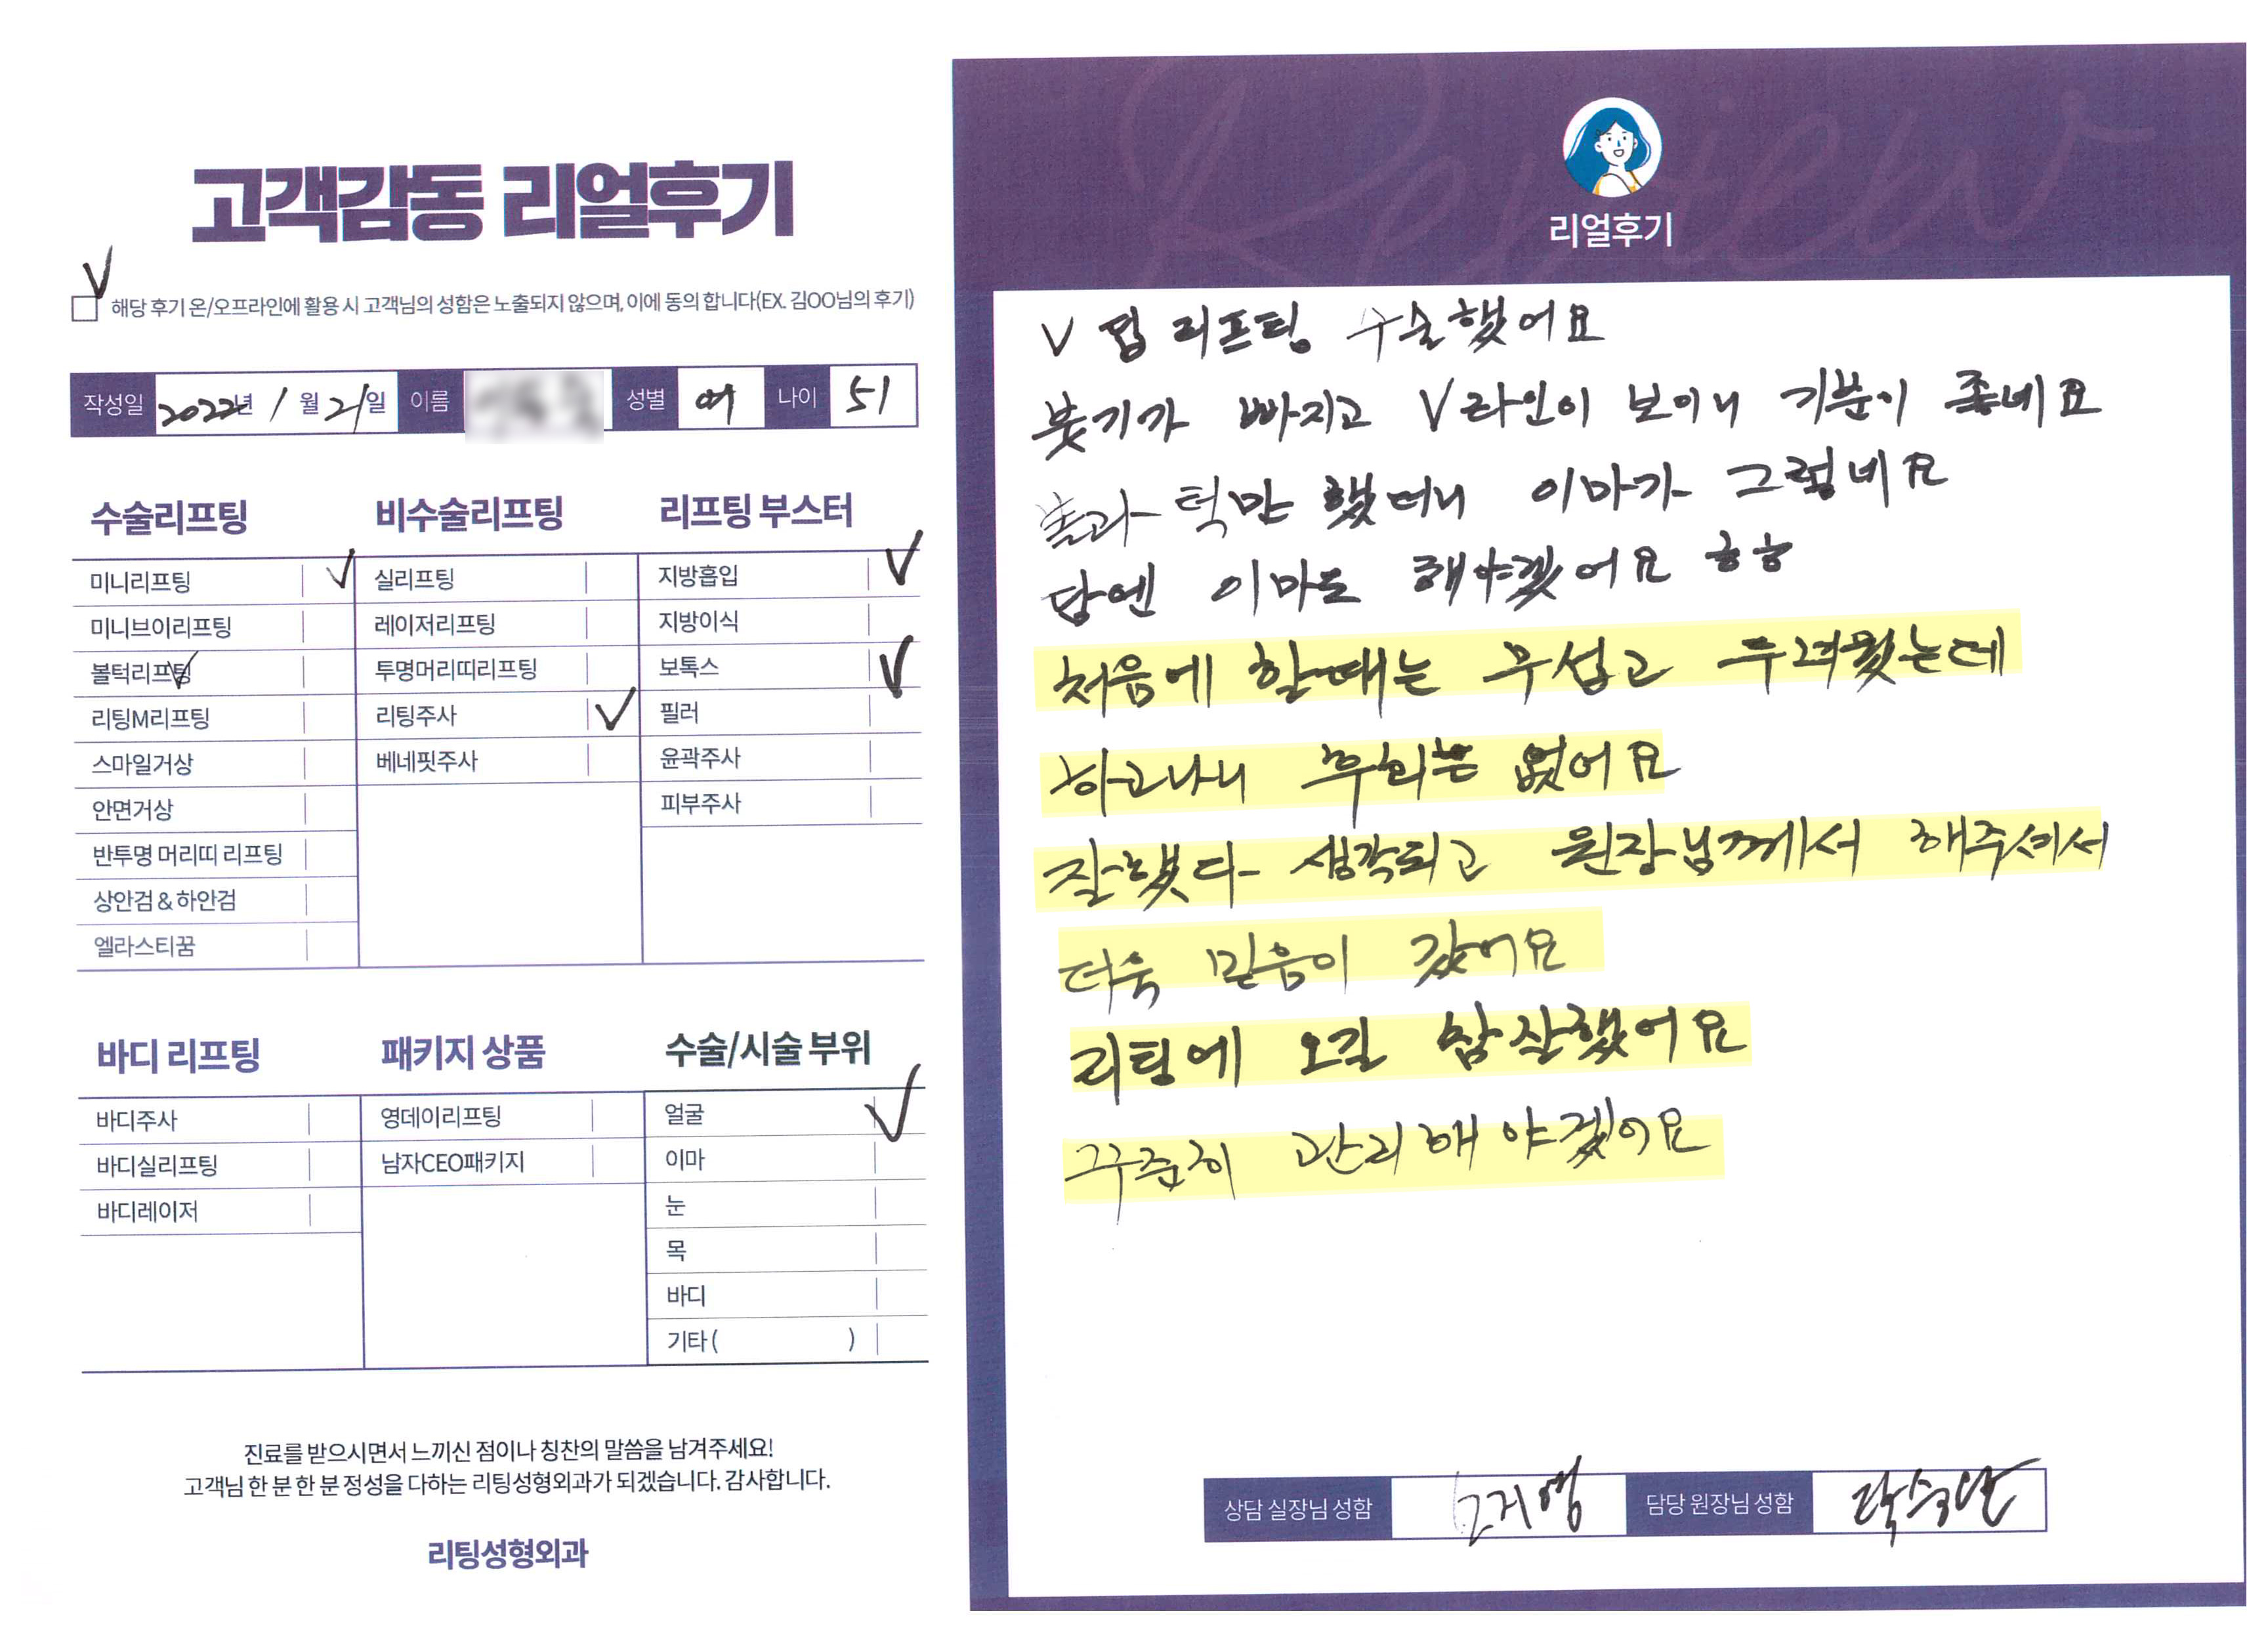 고객감동 리얼후기
해당 후기 온/오프라인에 활용 시 고객님의 성함은 노출되지 않으며, 이에 동의 합니다(EX. 김OO님의 후기)
작성일 2022년 1월 21일 이름 성별 여 나이 51
수술리프팅
미니리프팅
미니브이리프팅
볼턱리프팅
리팅M리프팅
스마일거상
안면거상
반투명 머리띠 리프팅
상안검 & 하안검
엘라스티꿈
비수술리프팅
실리프팅
레이저리프팅
투명머리띠리프팅
리팅주사
베네핏주사
리프팅 부스터
지방흡입
지방이식
보톡스
필러
윤곽주사
피부주사
바디 리프팅
바디주사
바디실리프팅
바디레이저
패키지 상품
영데이리프팅
남자CEO패키지
수술/시술 부위
얼굴
이마
눈
목
바디
기타 ( )
진료를 받으시면서 느끼신 점이나 칭찬의 말씀을 남겨주세요!
고객님 한 분 한 분 정성을 다하는 리팅성형외과가 되겠습니다. 감사합니다.
리팅성형외과
Review
리얼후기
V 리프팅 수술했어요
붓기가 빠지고 V라인이 보이니 기분이 좋네요
볼과 턱만 했더니 이마가 그렇네요
담엔 이마도 해야겠어요 ㅎㅎ
처음에 할때는 무섭고 두려웠는데
하고나니 후회는 없어요
잘했다 생각되고 원장님께서 해주셔서
더욱 믿음이 갔어요
리팅에 오길 참잘했어요
꾸준히 관리해야겠어요
상담 실장님 성함
담당 원장님 성함